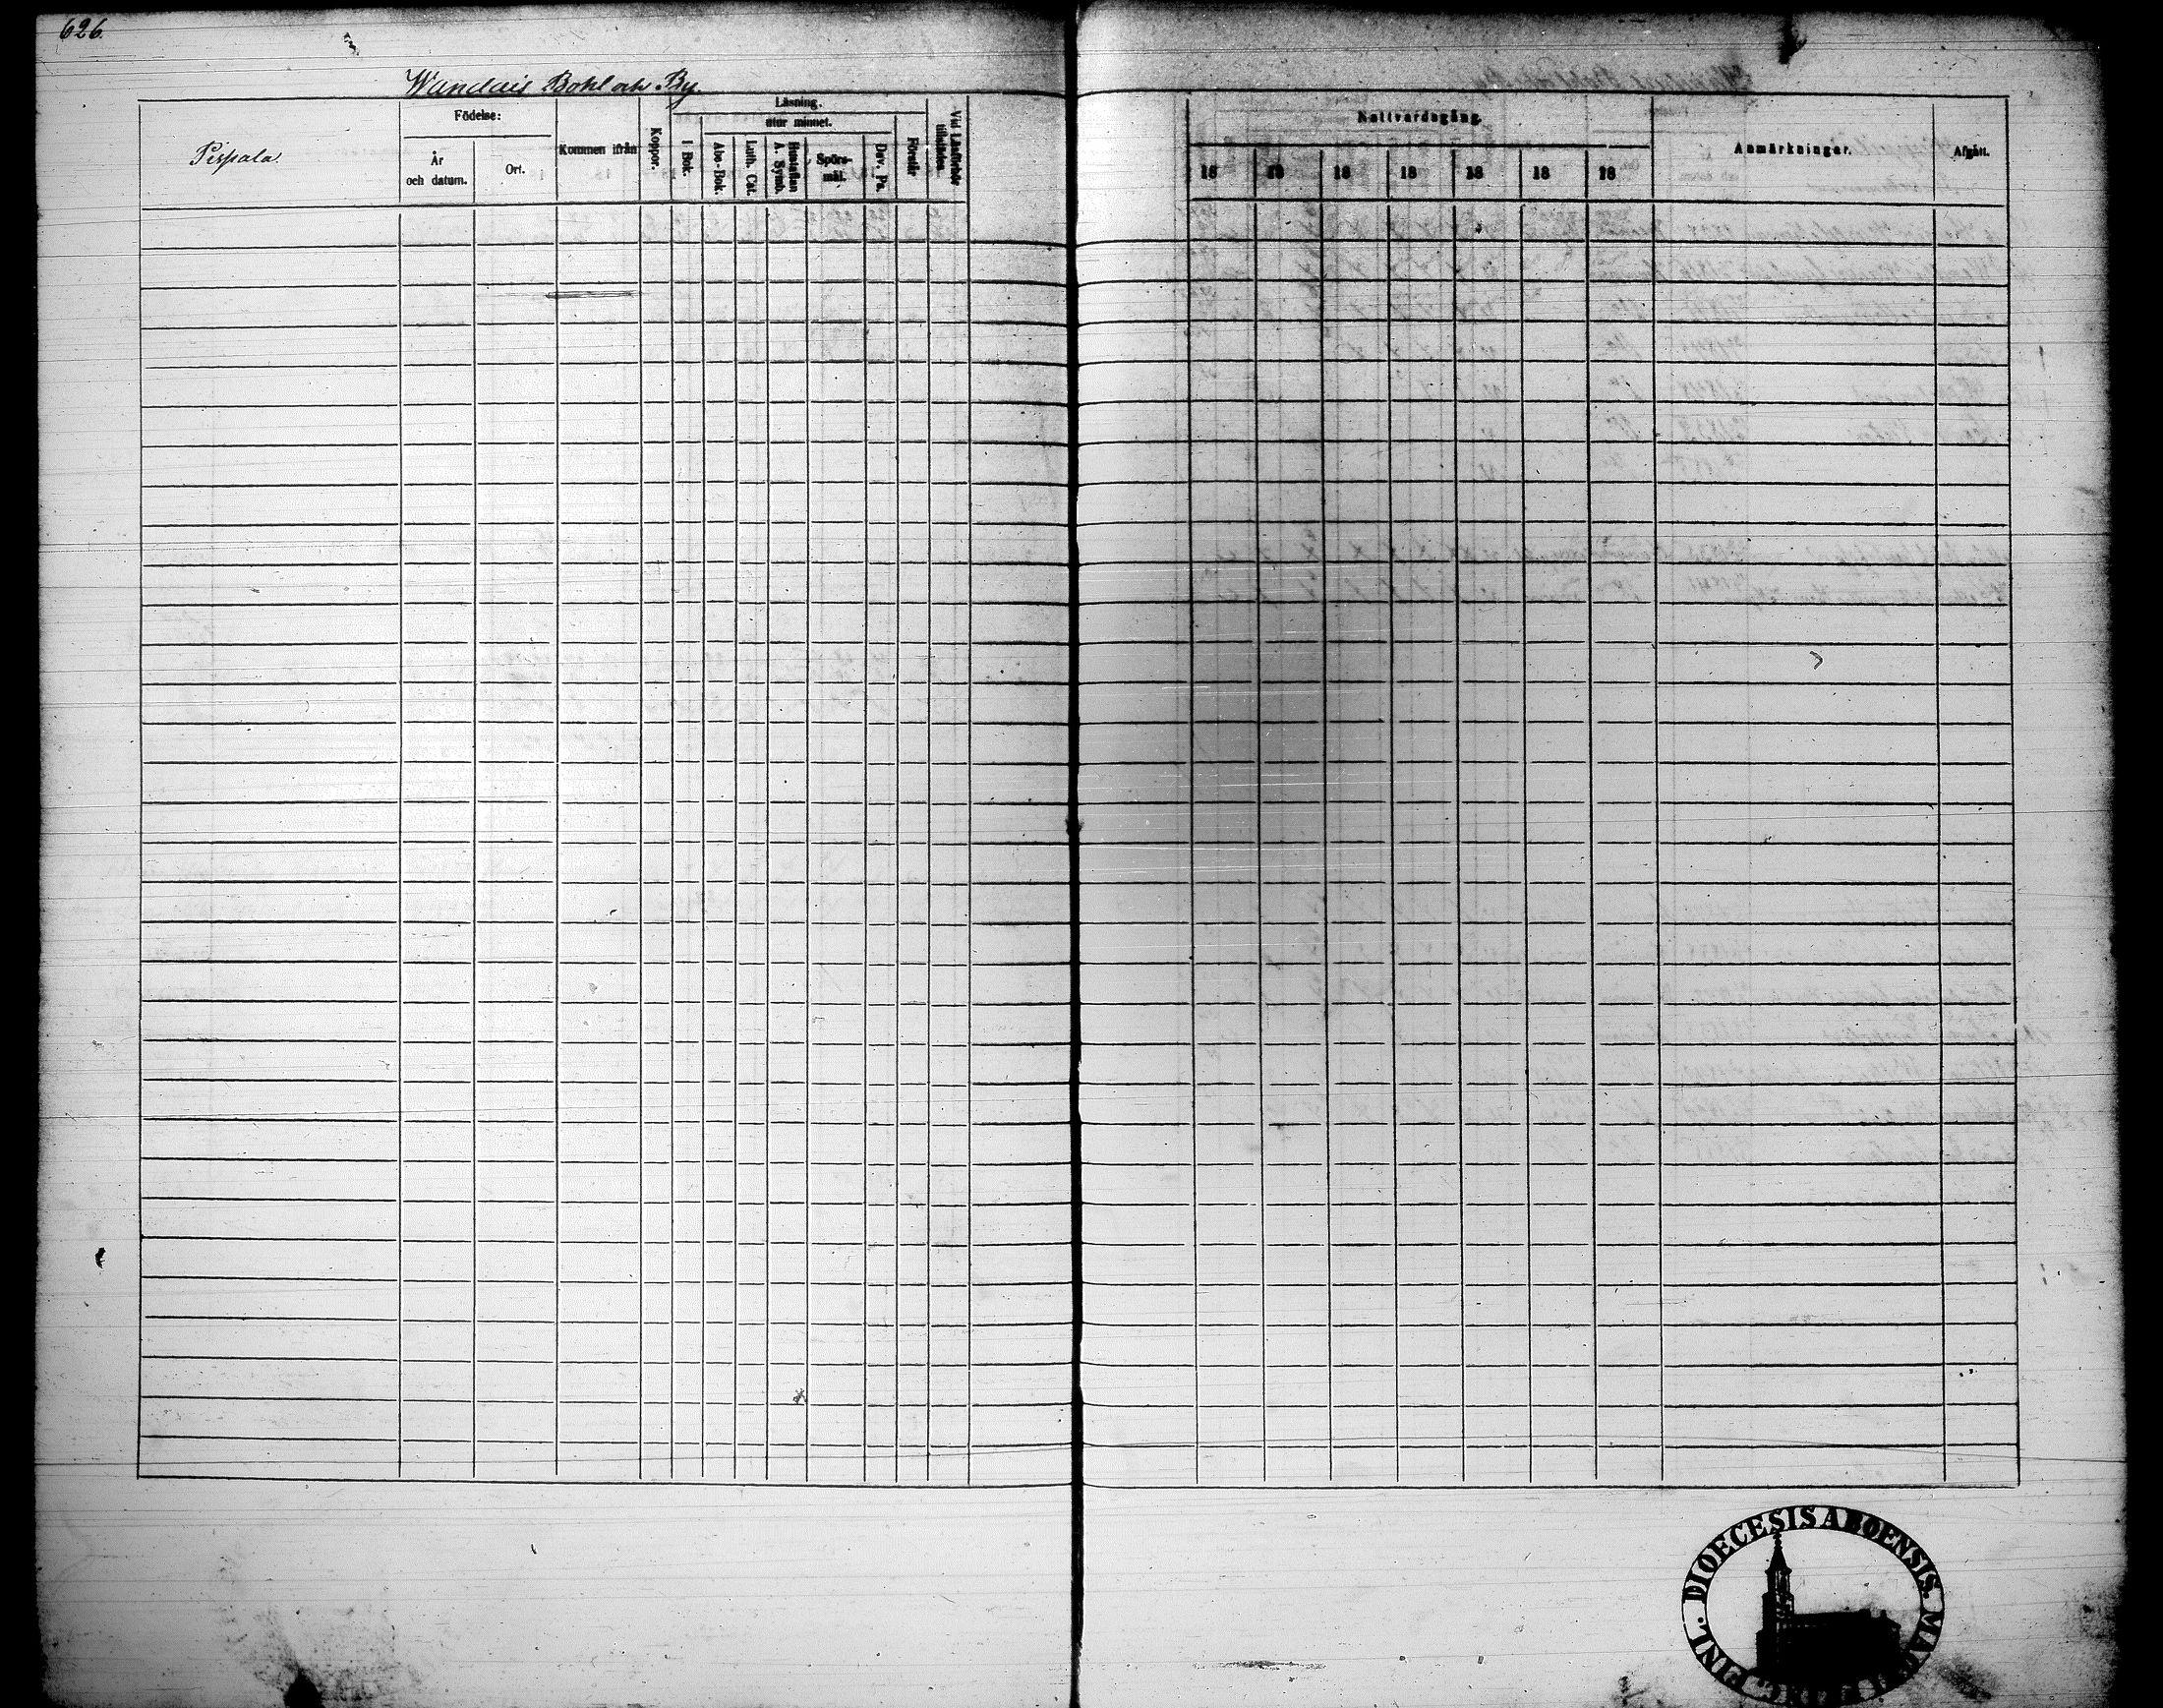 626.
Wandais Bohl och By.
Pispala.
Födelse:
År
och datum.
Ort.
Kommen ifrån
Koppor.
Läsning.
utur minnet.
I Bok.
Abc-Bok.
Luth. Cat.
Hustaflan
A. Symb.
Spörs-
mål.
Dav. Ps.
Förstår
Vid Läsförhör
tillstädes.
Nattvardsgång.
18 18 18 18 18 18 18
Anmärkningar.
Afgått.
DIOECESIS ABOENSIS. MAG
FINL.